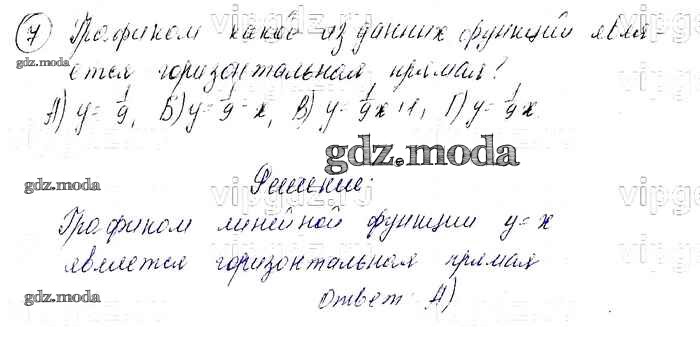 7 Графиком какой из данных функций явля-
ется горизонтальная прямая?
А) y = 1/9, Б) y = 1/9 - x, В) y = 1/9 x + 1, Г) y = 1/9 x
gdz.moda
Решение:
Графиком линейной функции y = x
является горизонтальная прямая
Ответ: А)
gdz.moda
gdz.moda
gdz.moda
vipgdz.ru